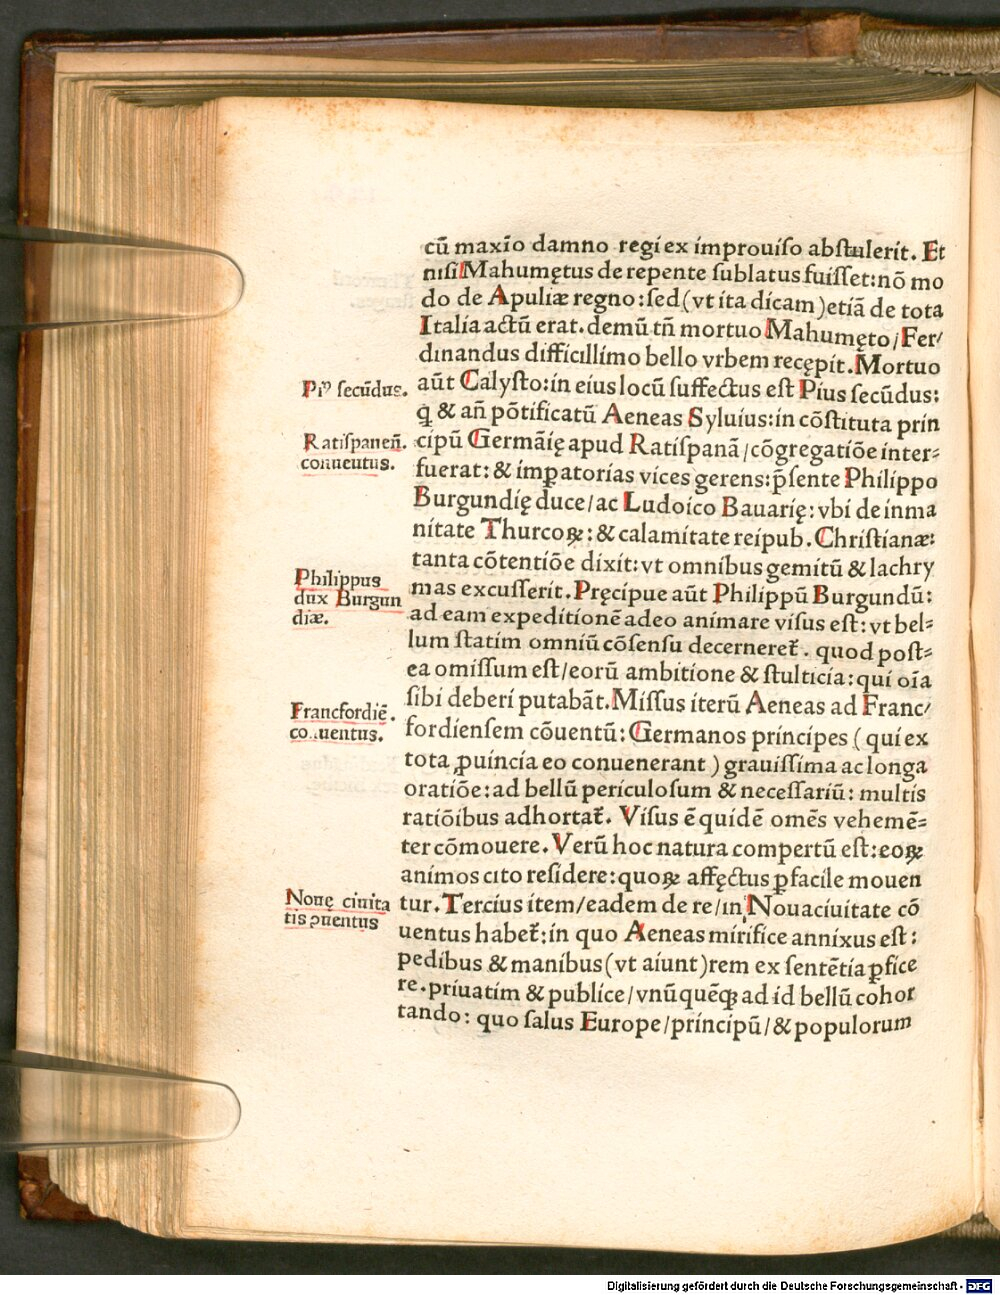 cū maxīo damno regi ex improuiſo abſtulerit. Et
niſi Mahumętus de repente ſublatus fuiſſet: nō mo
do de Apuliæ regno: ſed (vt ita dicam) etiā de tota
Italia actū erat. demū tñ mortuo Mahumęto / Fer/
dinandus difficillimo bello vrbem recępit. Mortuo
Piꝰ ſecūdus.
aūt Calyſto: in eius locū ſuffectus eſt Pius ſecūdus:
q̨ & añ pōtificatū Aeneas Syluius: in cōſtituta prin
Ratiſpaneñ.
conuentus.
cipū Germāię apud Ratiſpanā / cōgregatiōe inter⸗
fuerat: & imꝑatorias vices gerens: p̄ſente Philippo
Burgundię duce / ac Ludoico Bauarię: vbi de inma
nitate Thurcoꝝ: & calamitate reipub. Chriſtianæ:
tanta cōtentiōe dixit: vt omnibus gemitū & lachry
Philippus
dux Burgun
diæ.
mas excuſſerit. Pręcipue aūt Philippū Burgundū:
ad eam expeditionē adeo animare viſus eſt: vt bel⸗
lum ſtatim omniū cōſenſu decerneret̄. quod poſt⸗
ea omiſſum eſt / eorū ambitione & ſtulticia: qui oīa
ſibi deberi putabāt. Miſſus iterū Aeneas ad Franc/
Francfordiē.
conuentus.
fordienſem cōuentū: Germanos principes (qui ex
tota ꝓuincia eo conuenerant) grauiſſima ac longa
oratiōe: ad bellū periculoſum & neceſſariū: multis
ratiōibus adhortat̄. Viſus ē quidē omēs vehemē⸗
ter cōmouere. Verū hoc natura compertū eſt: eoꝝ
animos cito reſidere: quoꝝ affęctus ꝑfacile mouen
Nouę ciuita
tis ꝯuentus
tur. Tercius item / eadem de re / in Nouaciuitate cō
uentus habet̄: in quo Aeneas mirifice annixus eſt:
pedibus & manibus (vt aiunt) rem ex ſentētia ꝑfice
re. priuatim & publice / vnūquēqꝫ ad id bellū cohor
tando: quo ſalus Europe / principū / & populorum
Digitalisierung gefördert durch die Deutsche Forschungsgemeinschaft - DFG